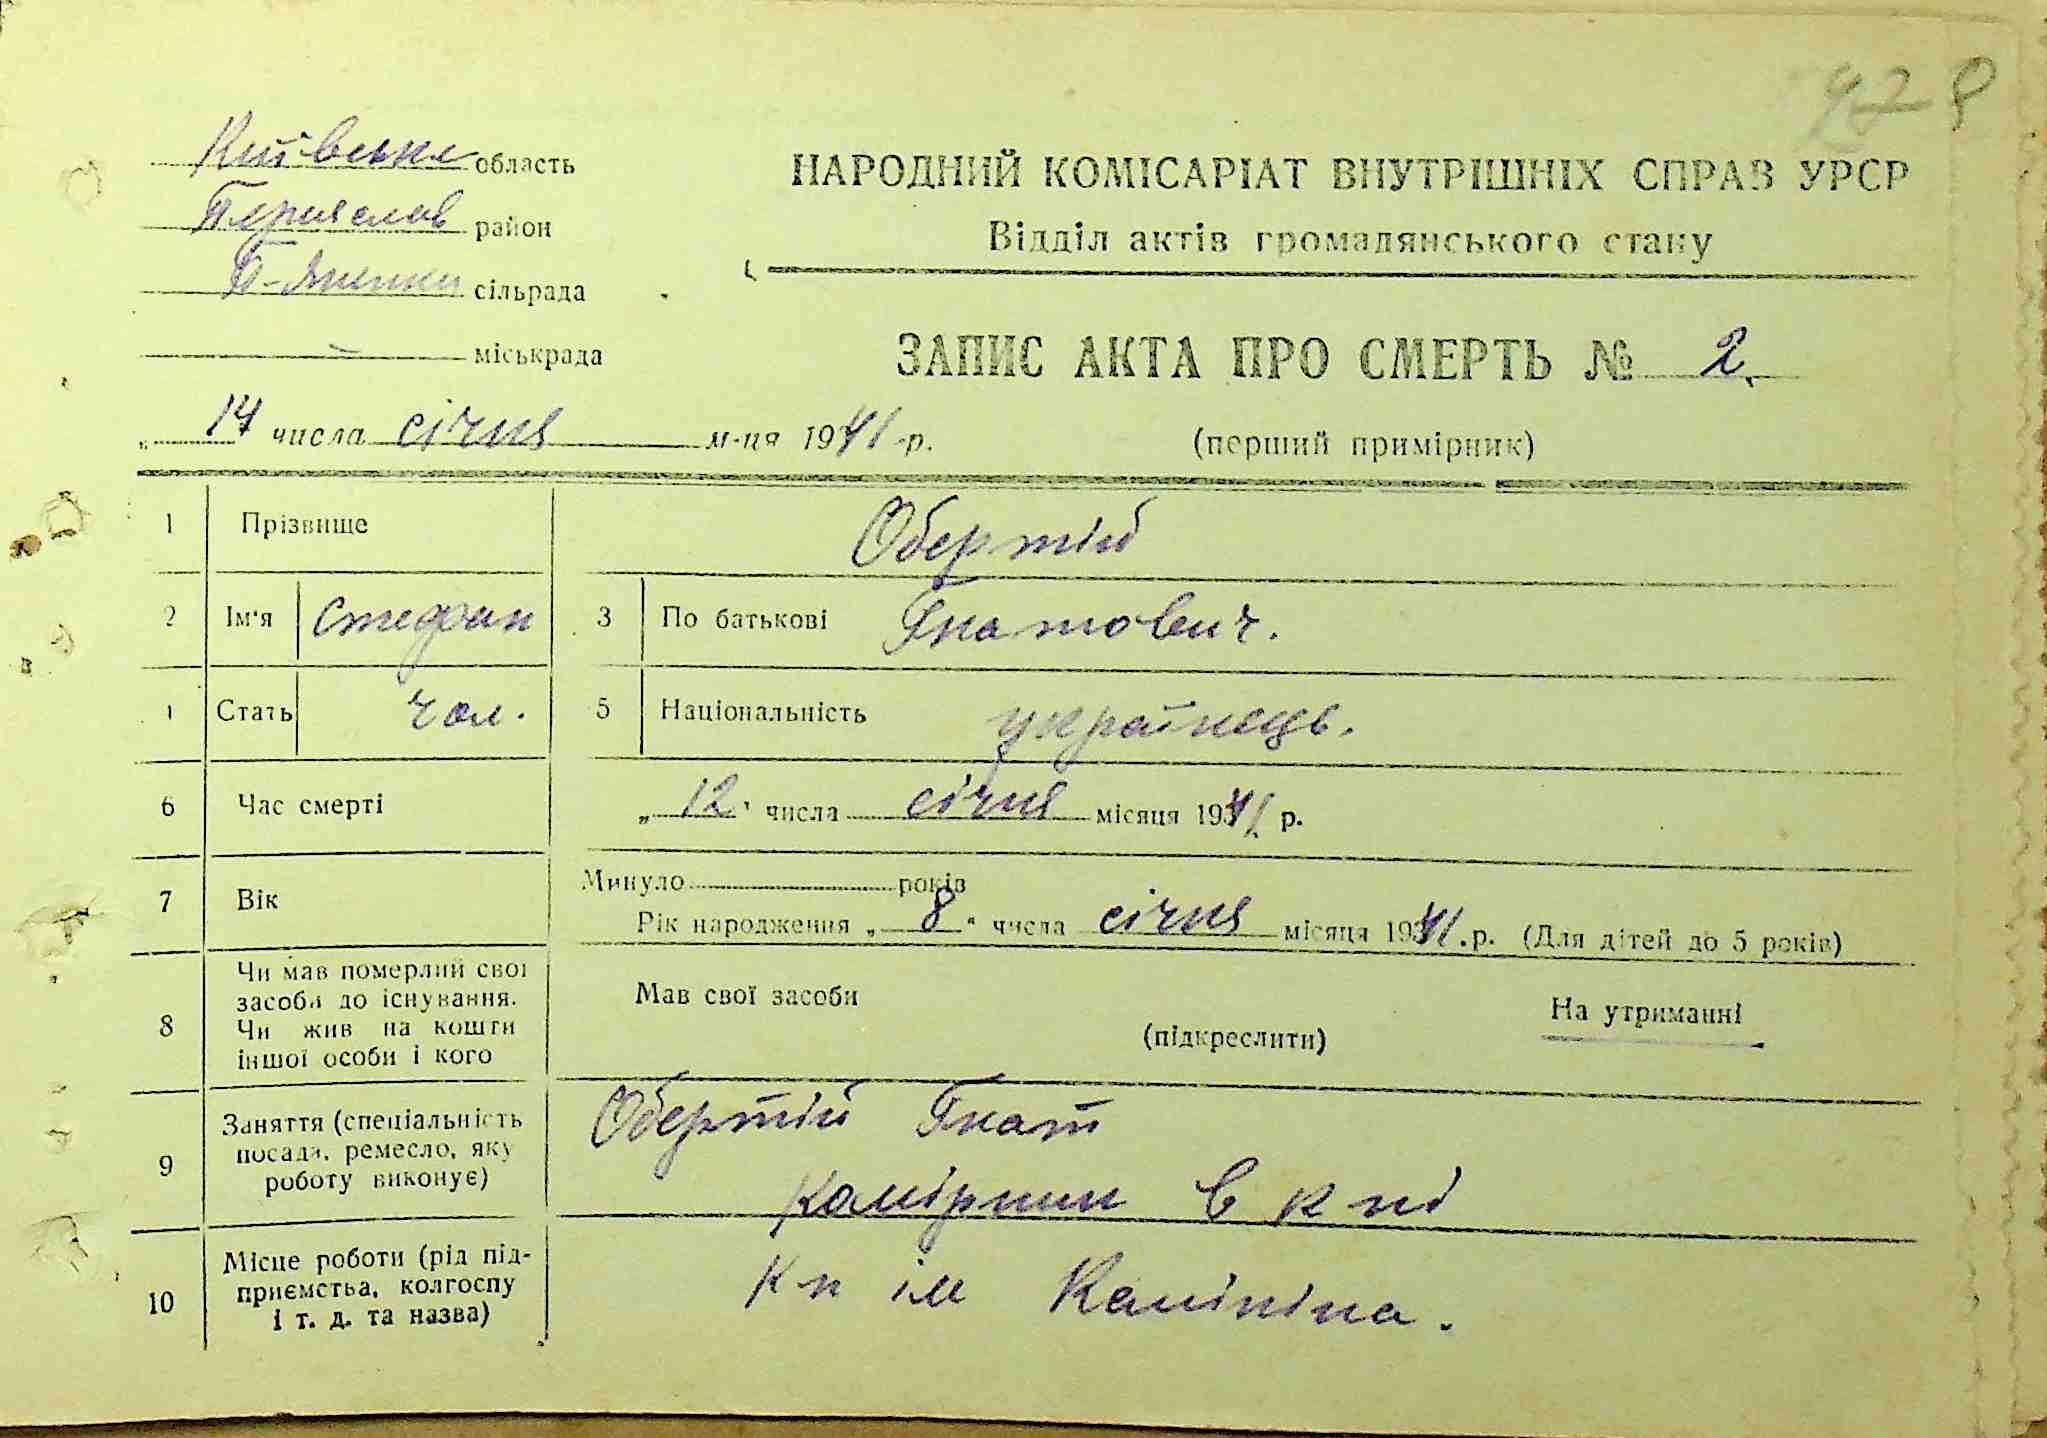 978
Київська область
Переяслав район
П-Яненки сільрада
міськрада
НАРОДНИЙ КОМІСАРІАТ ВНУТРІШНІХ СПРАВ УРСР
Відділ актів громадянського стану
ЗАПИС АКТА ПРО СМЕРТЬ № 2.
„ 14 числа січня м-ця 1941 р.
(перший примірник)
1 Прізвище Обертій
2 Ім'я Стефан 3 По батькові Гнатович.
Стать чол. 5 Національність українець.
6 Час смерті „ 12 " числа січня місяця 1941 р.
7 Вік Минуло років
Рік народження „ 8 " числа січня місяця 1941. р. (Для дітей до 5 років)
8 Чи мав померлий свої
засоби до існування.
Чи жив на кошти
іншої особи і кого
Мав свої засоби
(підкреслити)
На утриманні
9 Заняття (спеціальність
посада, ремесло, яку
роботу виконує)
Обертій Гнат
Комірник в к пі
10 Місце роботи (рід під-
приємства, колгоспу
і т. д. та назва)
Кп ім Калініна.